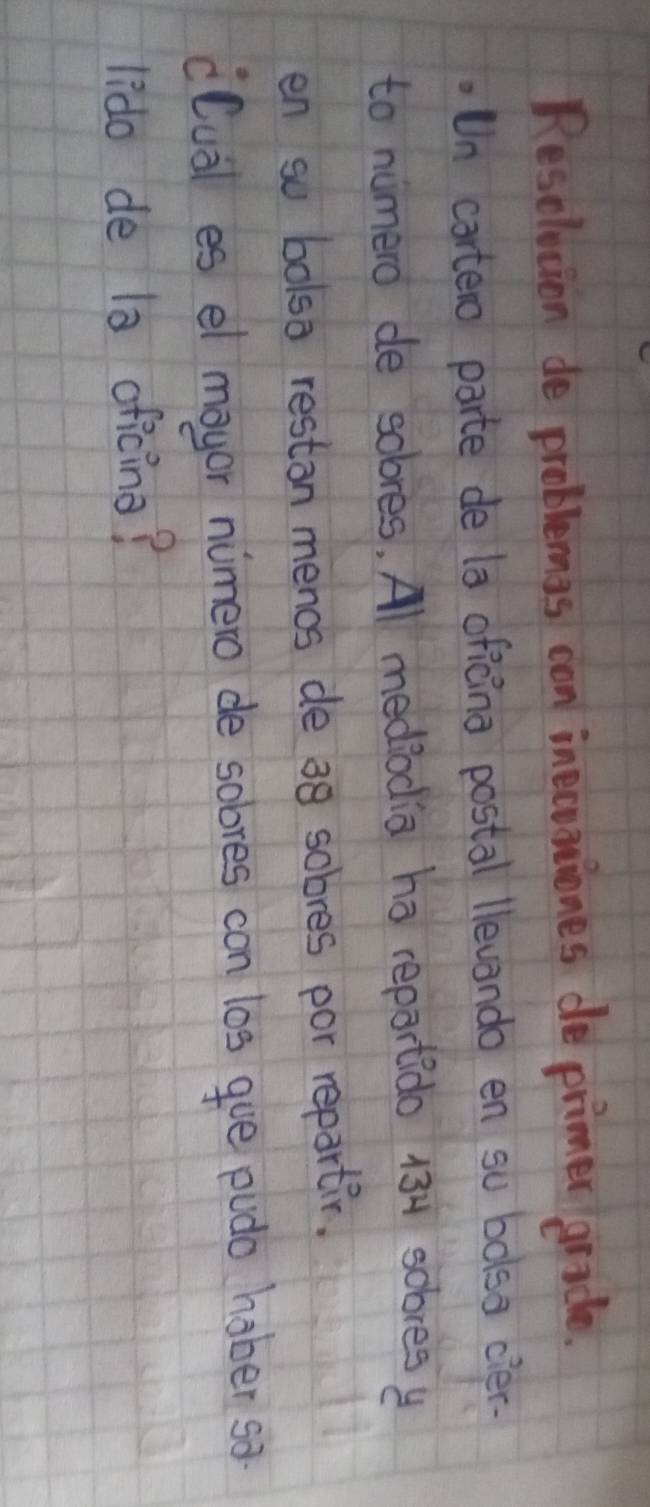 Resolución de problemas con inecuaciones de primer grado.
• Un cartero parte de la oficina postal llevando en su bolsa cier-
to número de sobres. Al mediodía ha repartido 134 sobres y
en su bolsa restan menos de 38 sobres por repartir.
¿Cuál es el mayor número de sobres con los que pudo haber sa-
lido de la oficina?